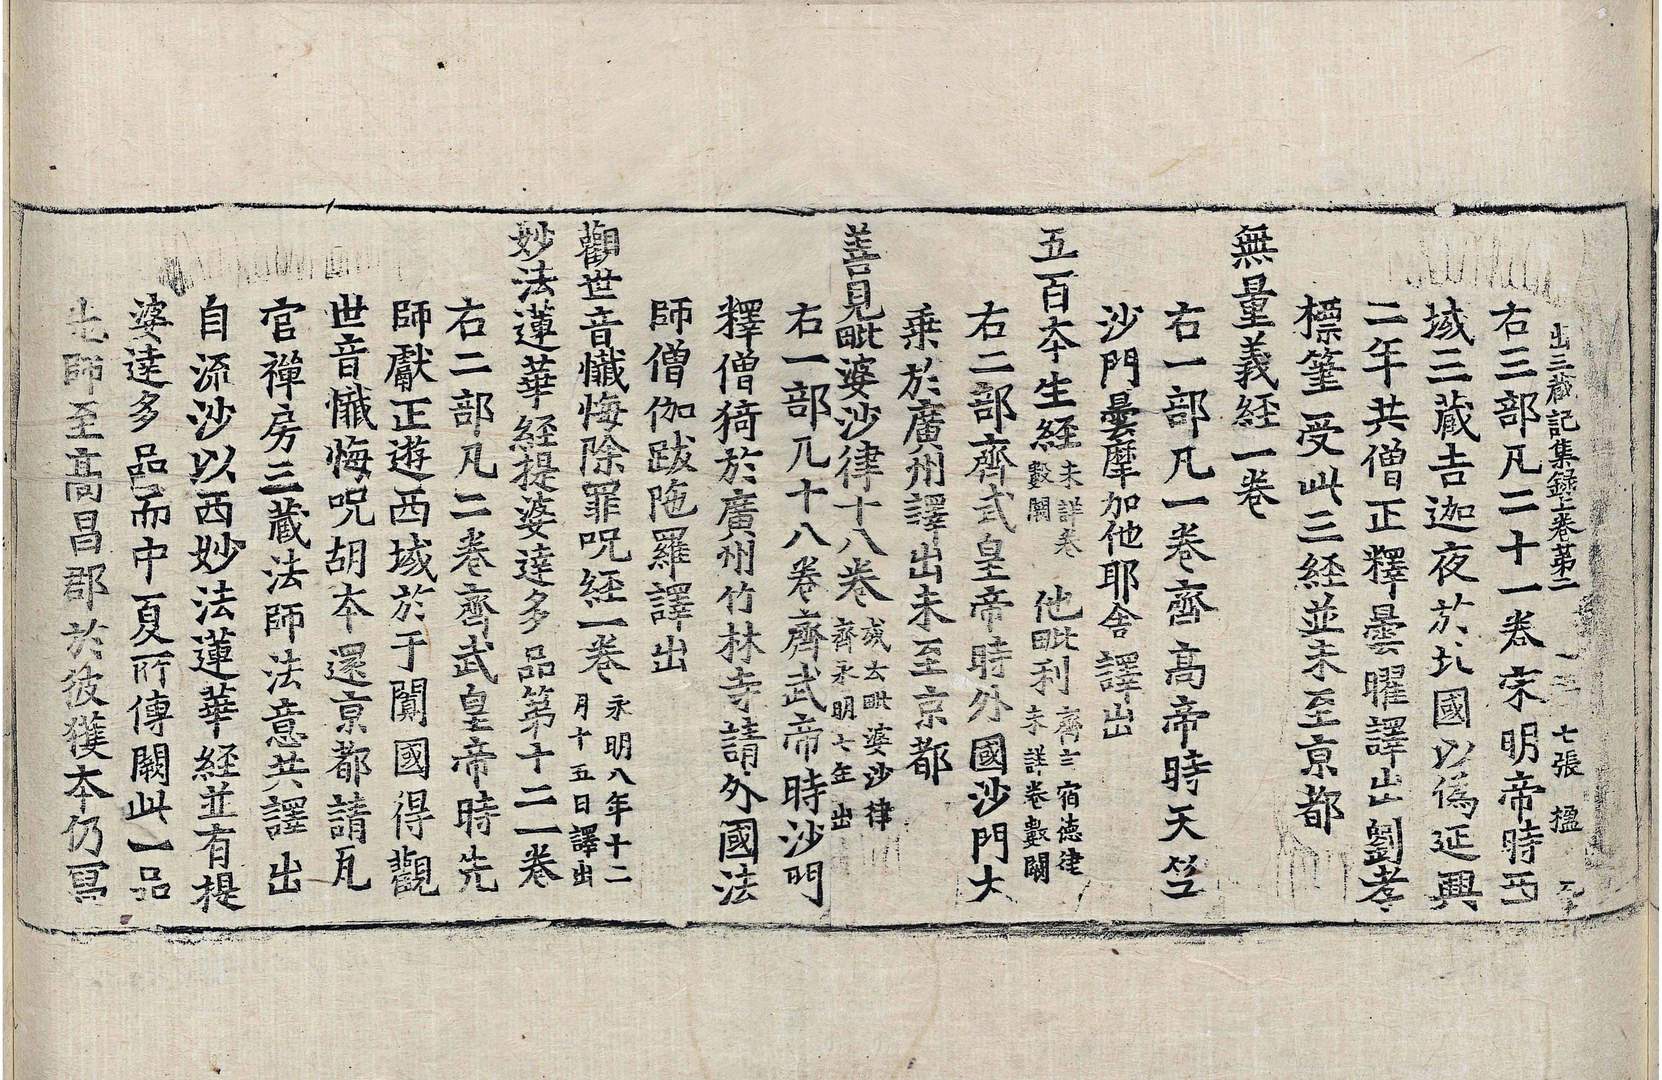 出三藏記集録上卷第二 七張 楹
右三部凡二十一卷宋明帝時西
域三藏吉迦夜於北國以僞延興
二年共僧正釋曇曜譯出劉孝
標筆受此三經並未至京都
無量義經一卷
右一部凡一卷齊高帝時天竺
沙門曇摩加他耶舍譯出
五百本生經未詳卷數闕 他毗利齊言宿德律未詳卷數闕
右二部齊武皇帝時外國沙門大
乗於廣州譯出未至京都
善見毗婆沙律十八卷或云毗婆沙律齊永明七年出
右一部凡十八卷齊武帝時沙門
釋僧猗於廣州竹林寺請外國法
師僧伽跋陁羅譯出
觀世音懺悔除罪呪經一卷永明八年十二月十五日譯出
妙法蓮華經提婆達多品第十二一卷
右二部凡二卷齊武皇帝時先
師獻正遊西域於于闐國得觀
世音懺悔呪胡本還京都請瓦
官禪房三藏法師法意共譯出
自流沙以西妙法蓮華經並有提
婆達多品而中夏所傳闕此一品
先師至高昌郡於彼獲本仍寫